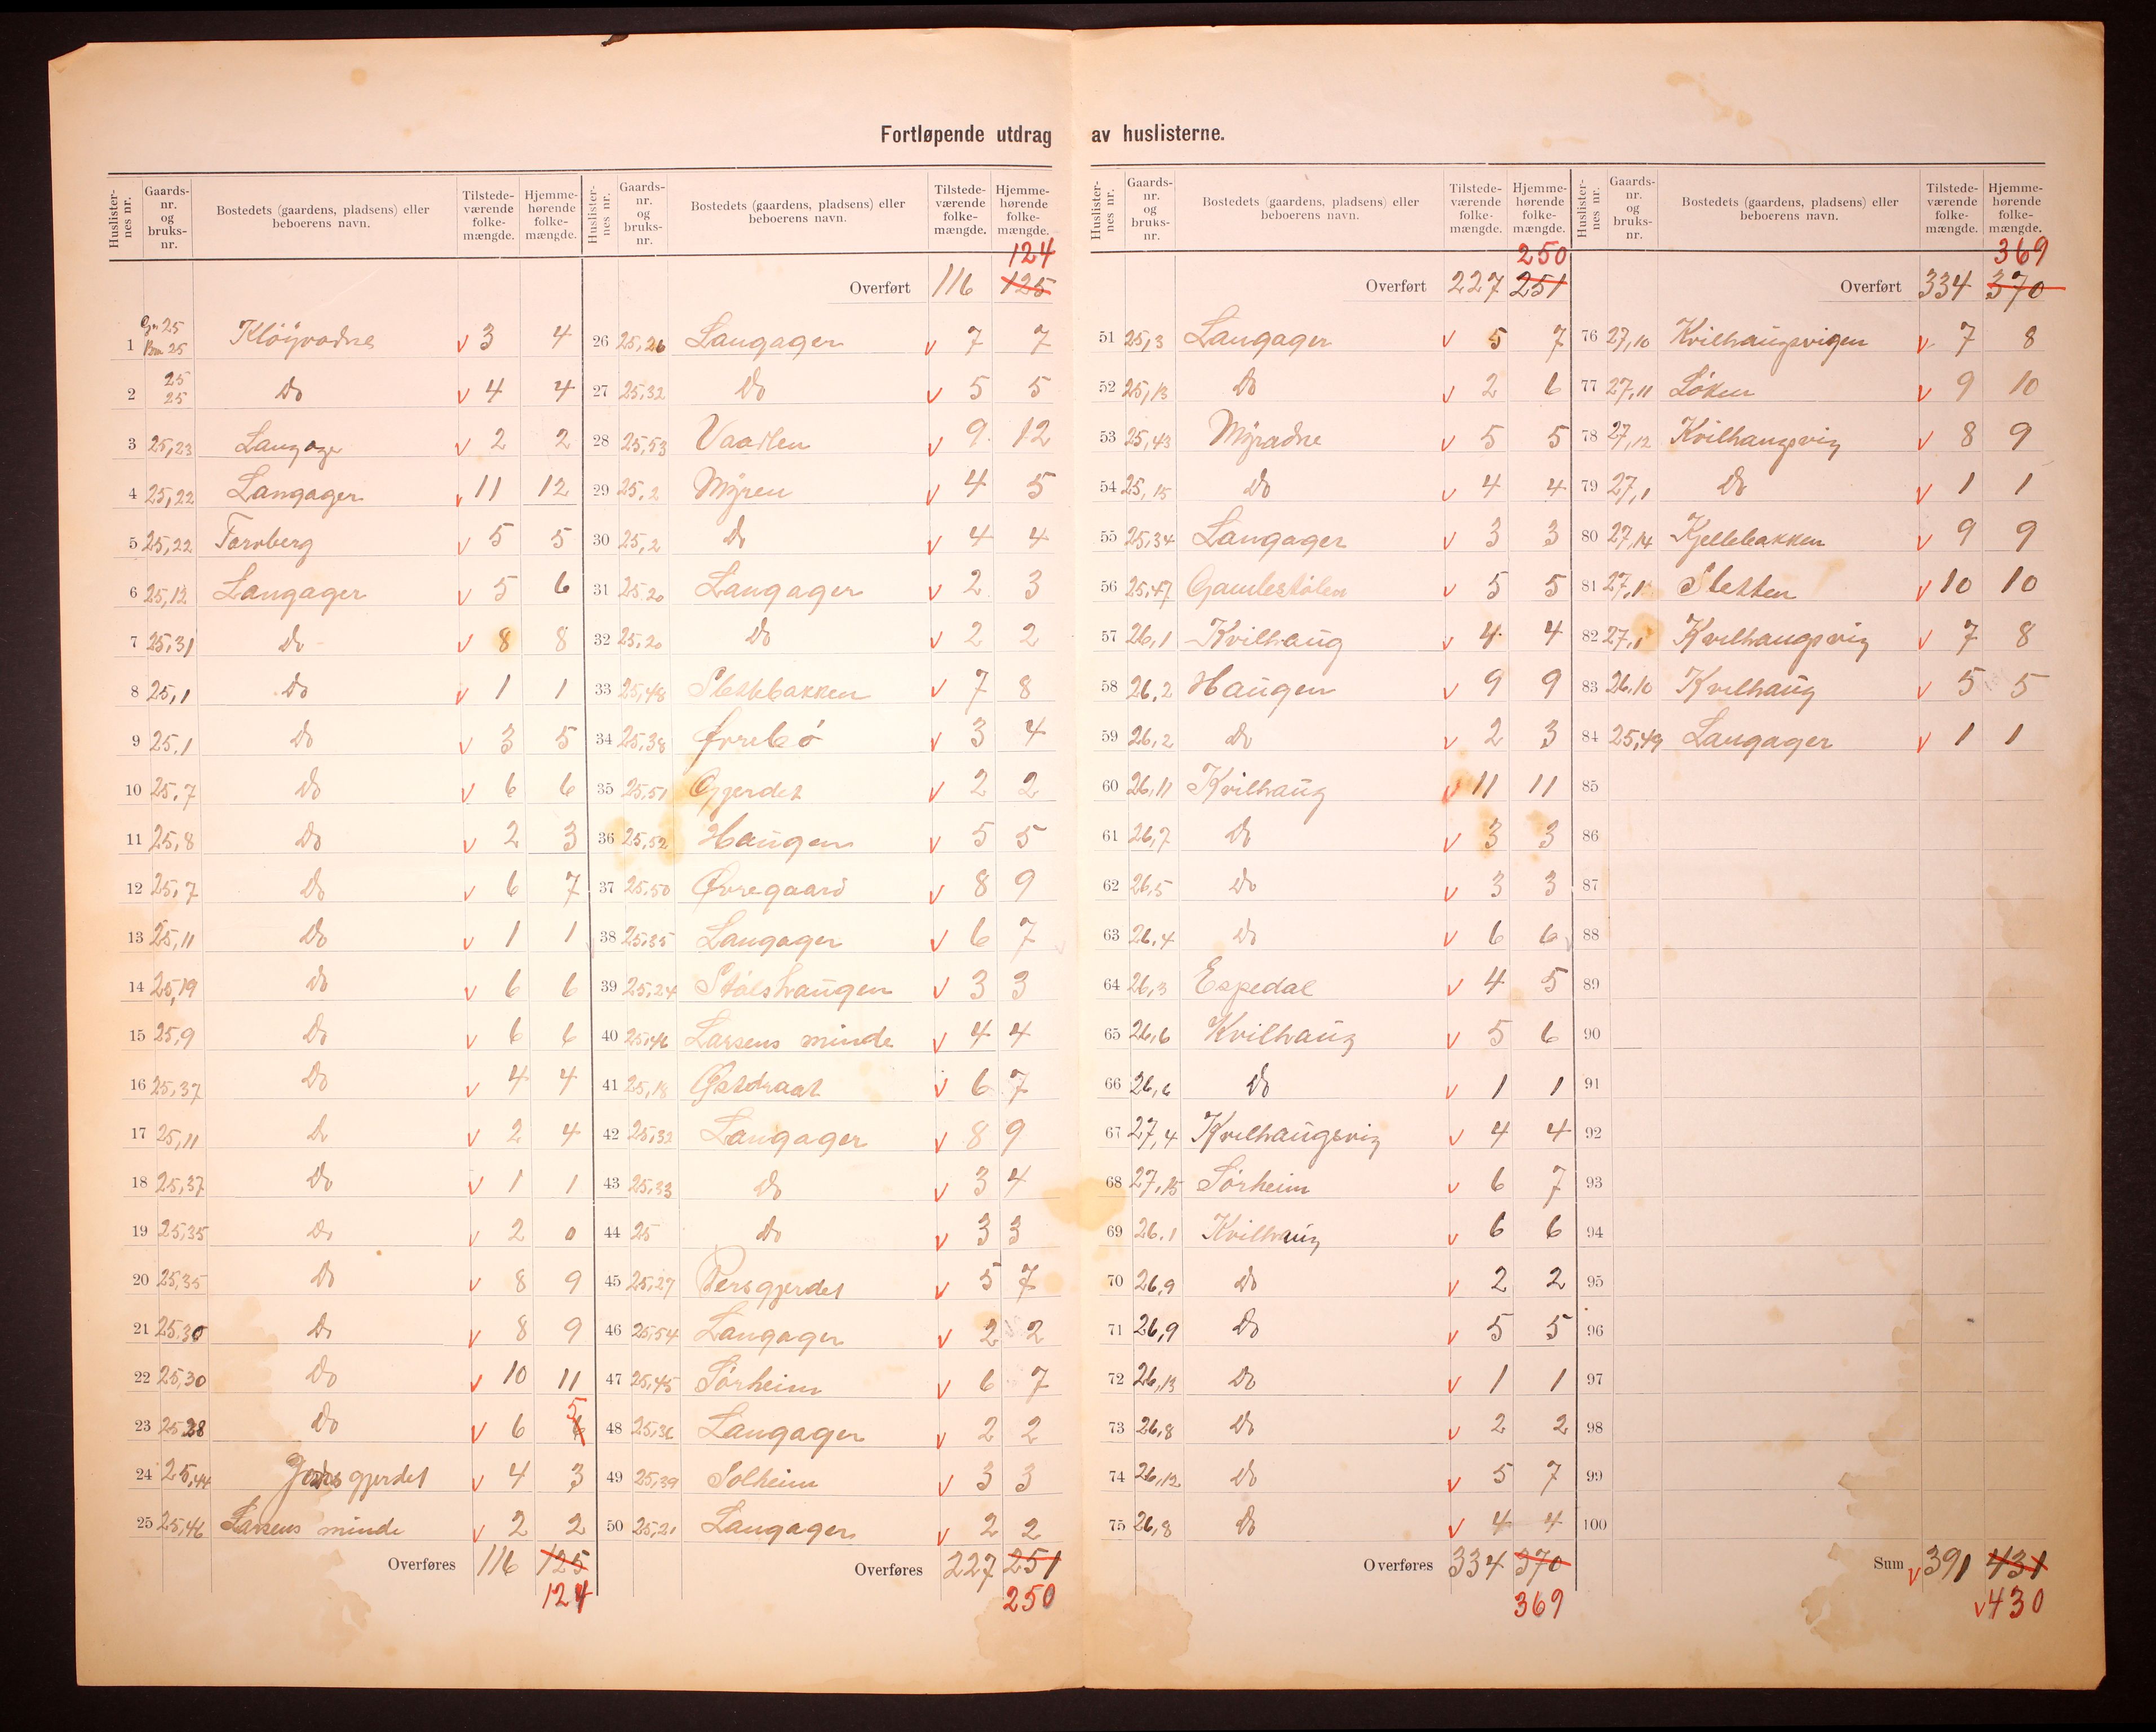 Fortløpende utdrag av huslisterne.
Huslisternes nr. Gaardsnr. og bruksnr. Bostedets (gaardens, pladsens) eller beboerens navn. Tilstedeværende folkemængde. Hjemmehørende folkemængde.
124
Overført 116 125
1 Gr 25 Br 25 Kløyvadne v 3 4
2 25 25 Do v 4 4
3 25,23 Langage v 2 2
4 25,22 Langager v 11 12
5 25,22 Torvberg v 5 5
6 25,12 Langager v 5 6
7 25,31 Do v 8 8
8 25,1 Do v 1 1
9 25,1 Do v 3 5
10 25,7 Do v 6 6
11 25,8 Do v 2 3
12 25,7 Do v 6 7
13 25,11 Do v 1 1
14 25,19 Do v 6 6
15 25,9 Do v 6 6
16 25,37 Do v 4 4
17 25,11 Do v 2 4
18 25,37 Do v 1 1
19 25,35 Do v 2 0
20 25,35 Do v 8 9
21 25,30 Do v 8 9
22 25,30 Do v 10 11
23 25 28 Do v 6 6 5
24 25,44 gjerdet v 4 3
25 25,46 Larsens minde v 2 2
Overføres 116 125
124
26 25,26 Langager v 7 7
27 25,32 Do v 5 5
28 25,53 Vaarlen v 9 12
29 25,2 Myren v 4 5
30 25,2 do v 4 4
31 25,20 Langager v 2 3
32 25,20 Do v 2 2
33 25,48 Slettebakken v 7 8
34 25,38 Ørrebø v 3 4
35 25,51 Gjerdet v 2 2
36 25,52 Haugen v 5 5
37 25,50 Øvregaard v 8 9
38 25,35 Langager v 6 7
39 25,24 Stølshaugen v 3 3
40 25,46 Larsens minde v 4 4
41 25,18 Østdraat v 6 7
42 25,32 Langager v 8 9
43 25,33 Do v 3 4
44 25 do v 3 3
45 25,27 Persgjerdet v 5 7
46 25,54 Langager v 2 2
47 25,45 Sørheim v 6 7
48 25,36 Langager v 2 2
49 25,39 Solheim v 3 3
50 25,21 Langager v 2 2
Overføres 227 251
250
Huslisternes nr. Gaardsnr. og bruksnr. Bostedets (gaardens, pladsens) eller beboerens navn. Tilstedeværende folkemængde. Hjemmehørende folkemængde.
250
Overført 227 251
51 25,3 Langager v 5 7
52 25,13 Do v 2 6
53 25,43 Myradne v 5 5
54 25,15 Do v 4 4
55 25,34 Langager v 3 3
56 25,47 Gamlestølen v 5 5
57 26,1 Kvilhaug v 4 4
58 26,2 Haugen v 9 9
59 26,2 do v 2 3
60 26,11 Kvilhaug v 11 11
61 26,7 Do v 3 3
62 26,5 Do v 3 3
63 26,4 Do v 6 6
64 26,3 Espedal v 4 5
65 26,6 Kvilhaug v 5 6
66 26,6 Do v 1 1
67 27,4 Kvilhaugsvig v 4 4
68 27,15 Sørheim v 6 7
69 26,1 Kvilhaug v 6 6
70 26,9 Do v 2 2
71 26,9 Do v 5 5
72 26,13 Do v 1 1
73 26,8 Do v 2 2
74 26,12 Do v 5 7
75 26,8 Do v 4 4
Overføres 334 370
369
369
Overført 334 370
76 27,10 Kvilhaugsvigen v 7 8
77 27,11 Løken v 9 10
78 27,12 Kvilhaugsvig v 8 9
79 27,1 Do v 1 1
80 27,14 Kjellebakken v 9 9
81 27,1 Sletten v 10 10
82 27,1 Kvilhaugsvig v 7 8
83 26,10 Kvilhaug v 5 5
84 25,49 Langager v 1 1
85
86
87
88
89
90
91
92
93
94
95
96
97
98
99
100
Sum v 391 431
v 430